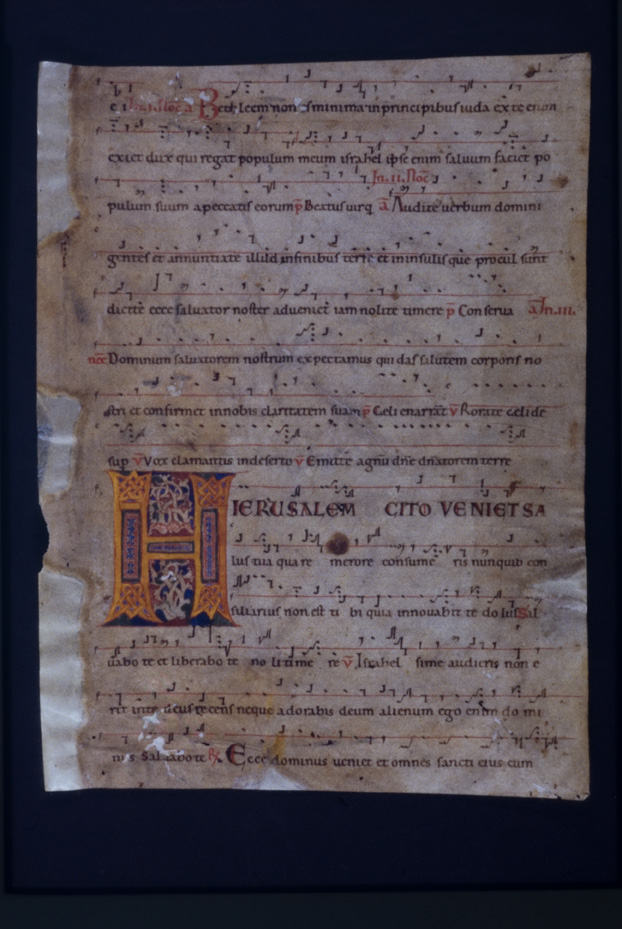 Beth leem non es minima in principibus iuda ex te enim
exiet dux qui regat populum meum israhel ipse enim saluum faciet po
In .II. Noct̄
pulum suum a peccatis eorum p̄ Beatus uirq ā Audite uerbum domini
gentes et annuntiate illud in finibus terre et in insulis que procul sunt
dicite ecce saluator noster adueniet iam nolite timere p̄ Conserua ā In .III.
noct̄ Dominum saluatorem nostrum expectamus qui das salutem corporis no
stri et confirmet in nobis claritatem suam p̄ Celi enarrāt v̄ Rorate celi de
sup v̄ Vox clamantis in deserto v̄ Emitte agnū dn̄e dn̄atorem terre
HIERUSALEM CITO VENIET SA
lus tua quare merore consume ris nunquid con
siliarius non est ti bi quia innouabit te dolus Sal
uabo te et liberabo te noli time re v̄ Israhel si me audieris non e
rit in te deus recens neque adorabis deum alienum ego enim do mi
nus Saluabo te ℟ Ecce dominus ueniet et omnes sancti eius cum